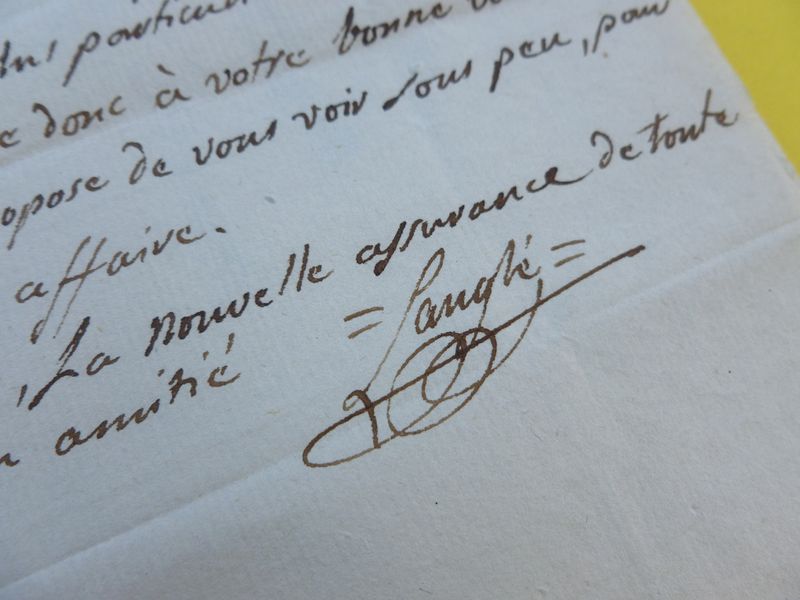 particul
donc à votre bonne
opose de vous voir sous peu, pour
affaire.
, La nouvelle assurance de toute
amitié = Langlé, =